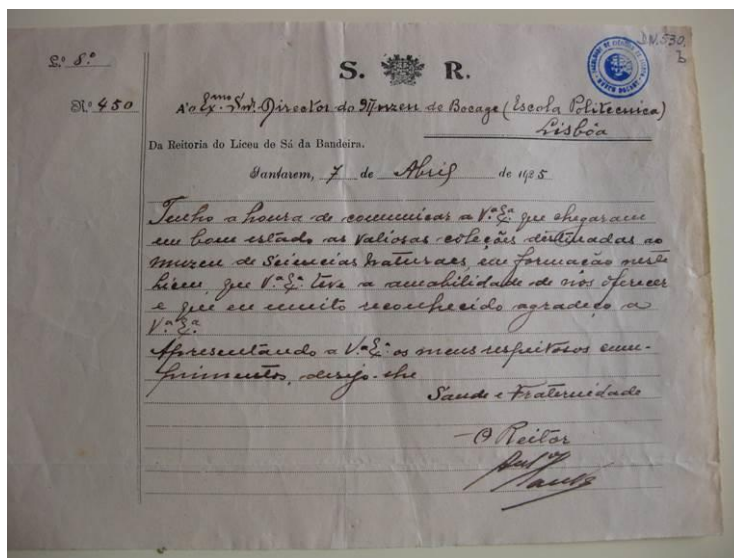 D.N. 530.
b
L.º 8.º
S. R.
N.º 450
A'o Ex.mo Snr. Director do Muzeu de Bocage (Escola Politecnica)
Lisbôa
Da Reitoria do Liceu de Sá da Bandeira.
Santarem, 7 de Abril de 1925
Tenho a honra de communicar a V.ª Ex.ª que chegaram
em bom estado as valiosas coleções destinadas ao
muzeu de Sciencias Naturaes, em formação neste
liceu, que V.ª Ex.ª teve a amabilidade de nos oferecer
e que eu muito reconhecido agradeço a
V.ª Ex.ª
Apresentando a V.ª Ex.ª os meus respeitosos cum-
primentos, desejo-lhe
Saude e Fraternidade
O Reitor